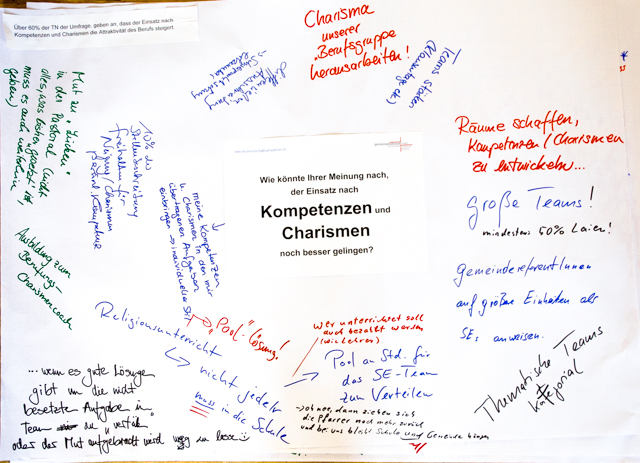 Über 60% der TN der Umfrage, geben an, dass der Einsatz nach
Kompetenzen und Charismen die Attraktivität des Berufs steigert.
Charisma
unserer
"Berufsgruppe
herausarbeiten!
Teams stärken
(Klausurtage etc)
Mut zu "Lücken"
in der Pastoral (nicht
alles, was bisher "gesetzt" ist,
muss es auch weiterhin
geben)
10% der
Stellenbeschreibung
freihalten für
Neigung/Charismen
besond. Kompetenz
meine Kompetenzen
u. Charismen in den mir
übertragenen Aufgaben
einbringen → individueller Stil
Wie könnte Ihrer Meinung nach,
der Einsatz nach
Kompetenzen und
Charismen
noch besser gelingen?
Räume schaffen,
Kompetenzen/Charismen
zu entwickeln...
große Teams!
mindestens 50% Laien!
GemeindereferentInnen
auf größere Einheiten als
SE, anweisen.
Ausbildung zum
Berufungs-
Charismencoach
Religionsunterricht
→ "Pool"-Lösung!
nicht jede/r
muss in die Schule
wer unterrichtet soll
auch bezahlt werden
(wie Lehrer)
Pool an Std. für
das SE-Team
zum Verteilen
→ oh nee, dann ziehen sich
die Pfarrer noch mehr zurück
und bei uns bleibt Schule und Gemeinde
Thematische Teams
kategorial
...wenn es gute Lösungen
gibt um die nicht
besetzte Aufgabe im
Team zu
oder das Mut aufgebracht wird weg zu lassen